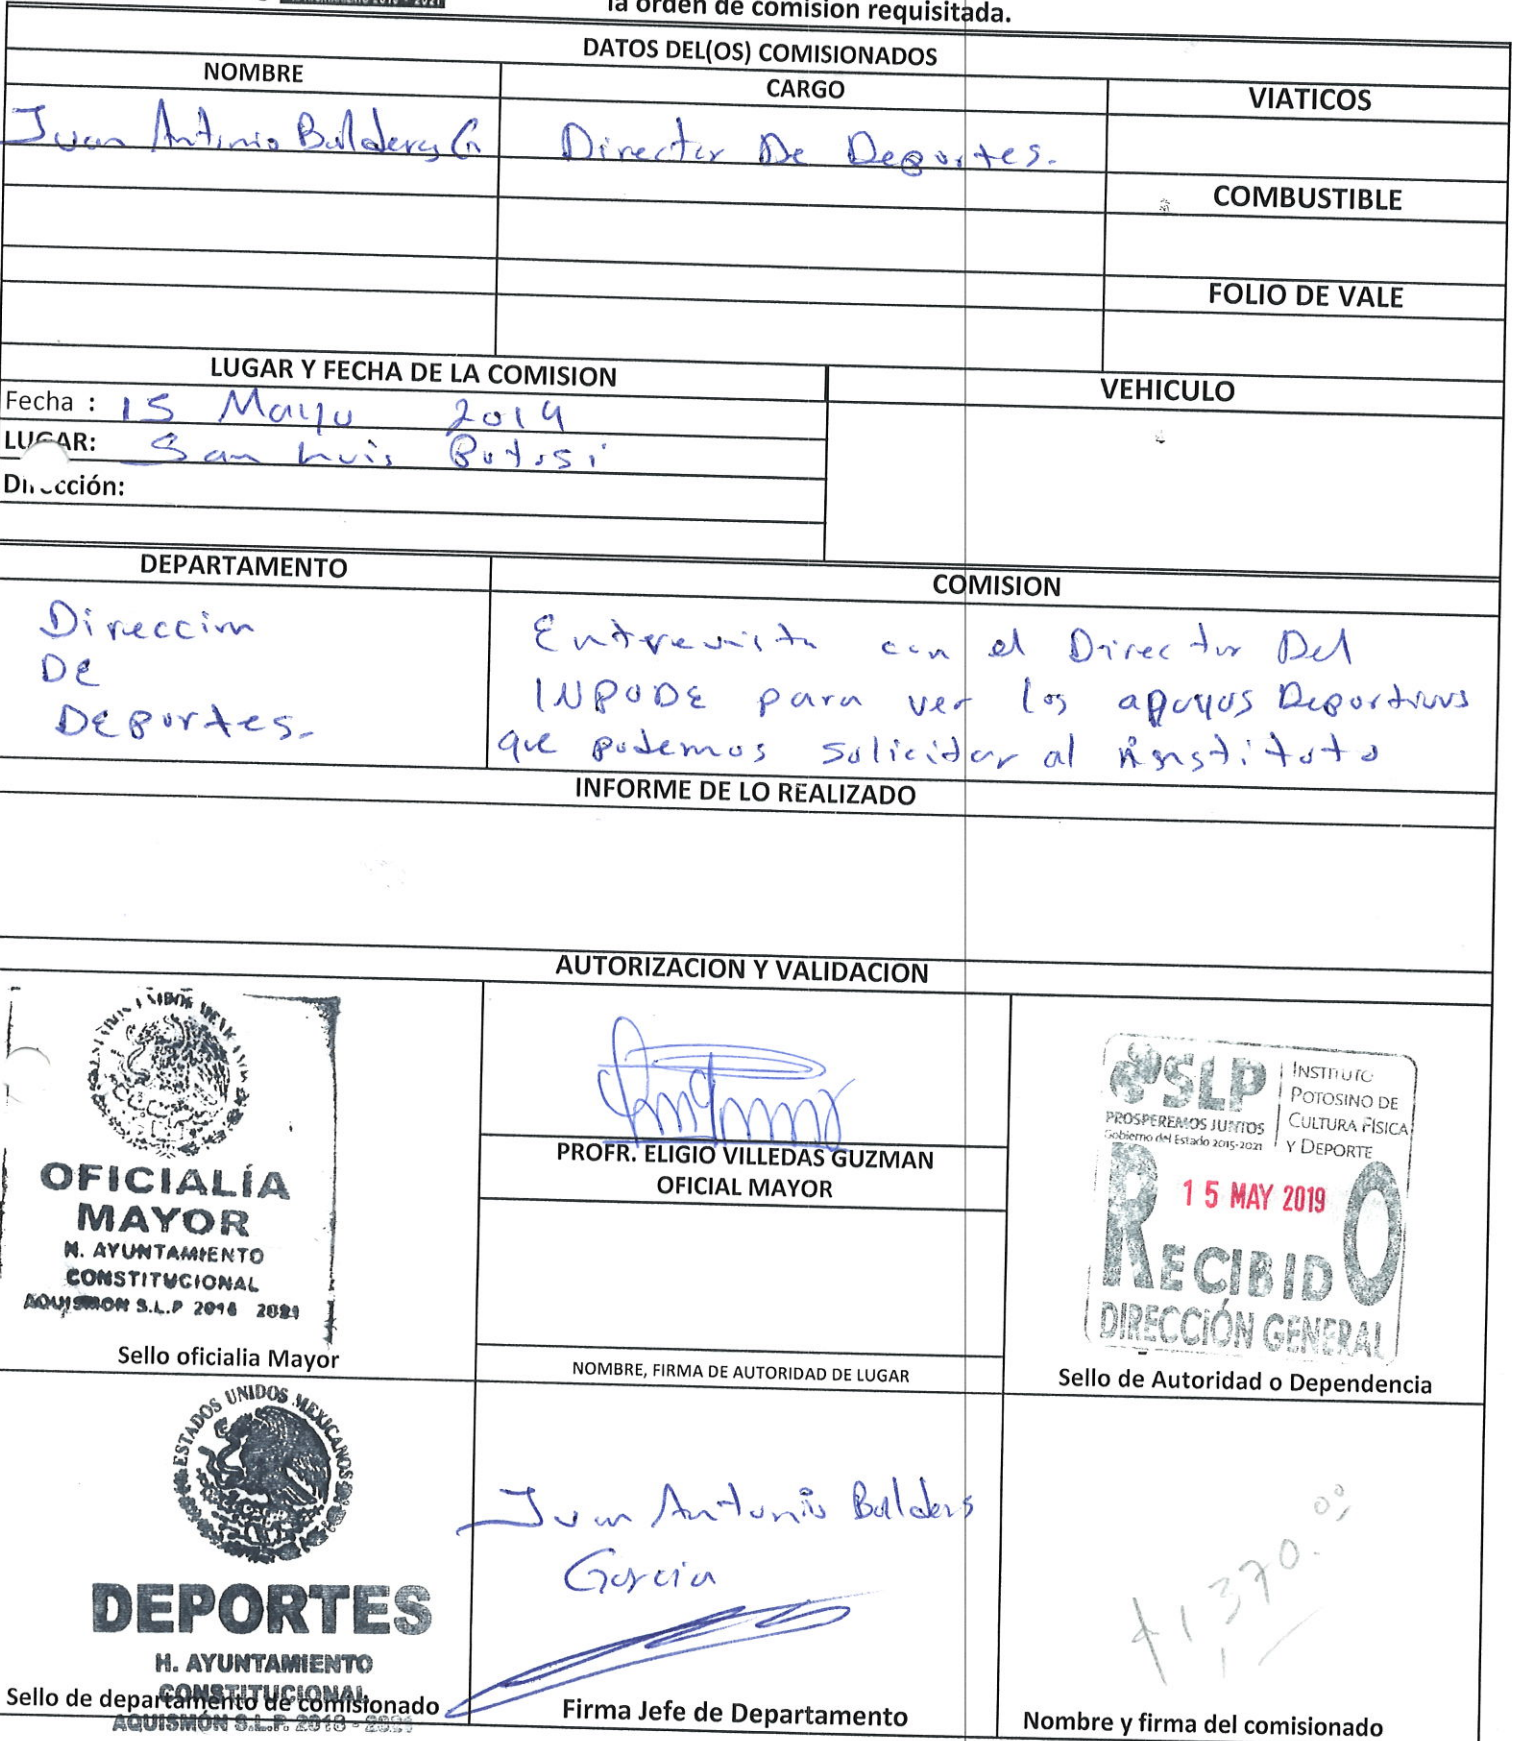 la orden de comision requisitada.
DATOS DEL(OS) COMISIONADOS
NOMBRE CARGO VIATICOS
Juan Antonio Balderas G Director De Deportes.
COMBUSTIBLE
FOLIO DE VALE
LUGAR Y FECHA DE LA COMISION VEHICULO
Fecha : 15 Mayo 2019
LUGAR: San Luis Potosi
Dirección:
DEPARTAMENTO COMISION
Direccion
DE
DEPortes.
Entrevista con el Director Del
INPODE para ver los apoyos Deportivos
que podemos solicitar al instituto
INFORME DE LO REALIZADO
AUTORIZACION Y VALIDACION
ESTADOS UNIDOS MEXICANOS
OFICIALÍA
MAYOR
H. AYUNTAMIENTO
CONSTITUCIONAL
AQUISMON S.L.P 2018 2021
Sello oficialia Mayor
PROFR. ELIGIO VILLEDAS GUZMAN
OFICIAL MAYOR
NOMBRE, FIRMA DE AUTORIDAD DE LUGAR
SLP
PROSPEREMOS JUNTOS
Gobierno del Estado 2015-2021
INSTITUTO
POTOSINO DE
CULTURA FÍSICA
Y DEPORTE
15 MAY 2019
RECIBIDO
DIRECCIÓN GENERAL
Sello de Autoridad o Dependencia
ESTADOS UNIDOS MEXICANOS
DEPORTES
H. AYUNTAMIENTO
CONSTITUCIONAL
AQUISMÓN S.L.P. 2018 - 2021
Sello de departamento de comisionado
Juan Antonio Balderas
Garcia
Firma Jefe de Departamento
1,370.00
Nombre y firma del comisionado